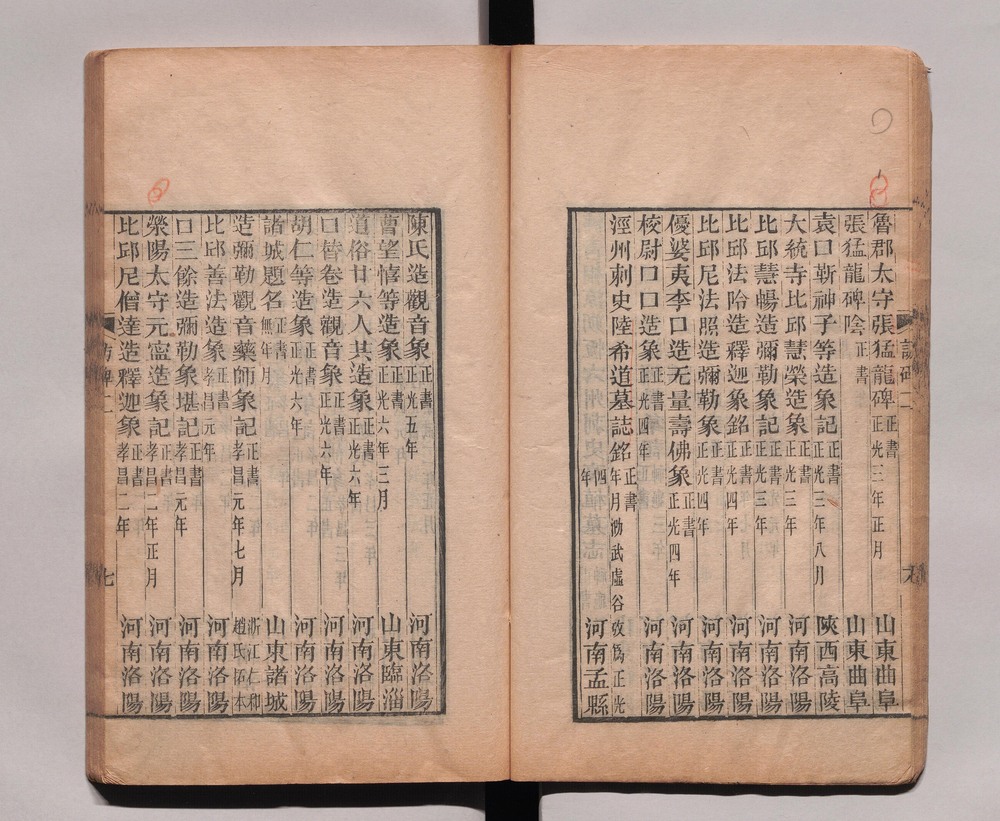 魯郡太守張猛龍碑 正書 正光三年正月 山東曲阜
張猛龍碑陰 正書 山東曲阜
袁口靳神子等造象記 正書 正光三年八月 陝西高陵
大統寺比邱慧榮造象 正書 正光三年 河南洛陽
比邱慧暢造彌勒象記 正書 正光三年 河南洛陽
比邱法唫造釋迦象銘 正書 正光四年 河南洛陽
比邱尼法照造彌勒象 正書 正光四年 河南洛陽
優婆夷李口造无量壽佛象 正書 正光四年 河南洛陽
校尉口口造象 正書 正光四年 河南洛陽
涇州刺史陸希道墓誌銘 正書 年月泐武虛谷攷爲正光四年 河南孟縣
陳氏造觀音象 正書 正光五年 河南洛陽
曹望憘等造象 正書 正光六年三月 山東臨淄
道俗廿六人其造象 正書 正光六年 河南洛陽
口昝卷造觀音象 正書 正光六年 河南洛陽
胡仁等造象 正書 正光六年 河南洛陽
諸城題名 正書 無年月 山東諸城
造彌勒觀音藥師象記 正書 孝昌元年七月 浙江仁和趙氏拓本
比邱善法造象 正書 孝昌元年 河南洛陽
口三餘造彌勒象堪記 正書 孝昌元年 河南洛陽
滎陽太守元寍造象記 正書 孝昌二年正月 河南洛陽
比邱尼僧達造釋迦象 正書 孝昌二年 河南洛陽
訪碑二
七